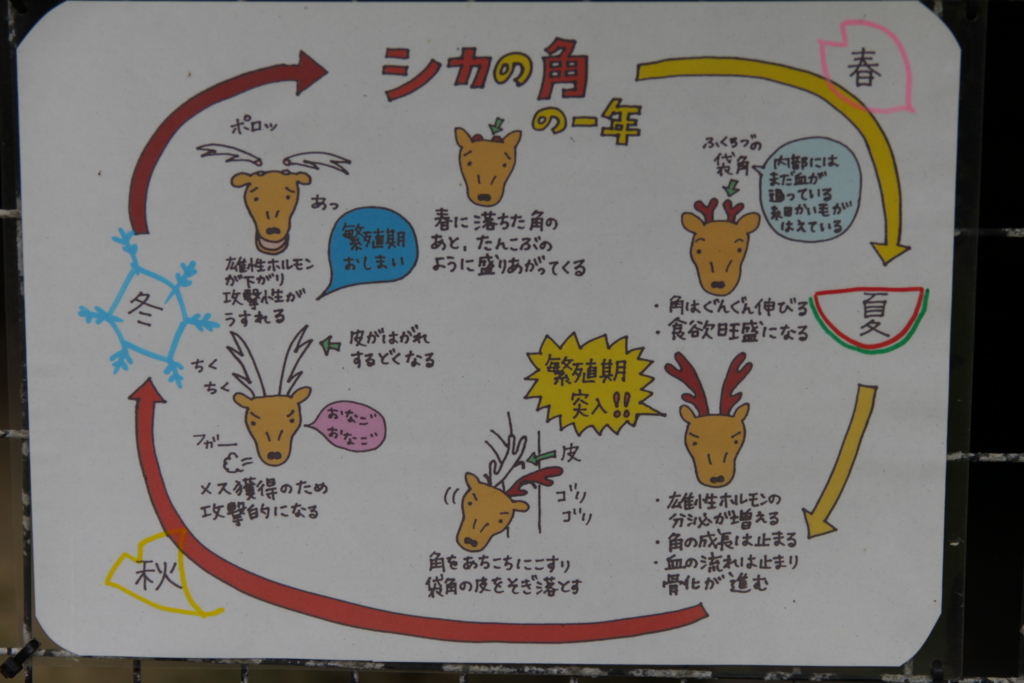 シカの角
の一年
春
春に落ちた角の
あと、たんこぶの
ように盛りあがってくる
ふくろづの
袋角
内部には
まだ血が
通っている
細かい毛が
はえている
・角はぐんぐん伸びる
・食欲旺盛になる
夏
繁殖期
突入!!
・雄性ホルモンの
分泌が増える
・角の成長は止まる
・血の流れは止まり
骨化が進む
皮
ゴリ
ゴリ
角をあちこちにこすり
袋角の皮をそぎ落とす
秋
皮がはがれ
するどくなる
ちく
ちく
おなご
おなご
フガー
メス獲得のため
攻撃的になる
冬
ポロッ
あっ
繁殖期
おしまい
雄性ホルモン
が下がり
攻撃性が
うすれる